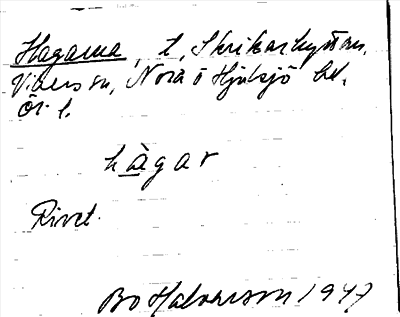 Hagarna, t, Skrikarhyttan,
Vikers sn, Nora o Hjulsjö bd,
Ör. l.
hàgar
Rivet.
Bo Halvarsson 1947